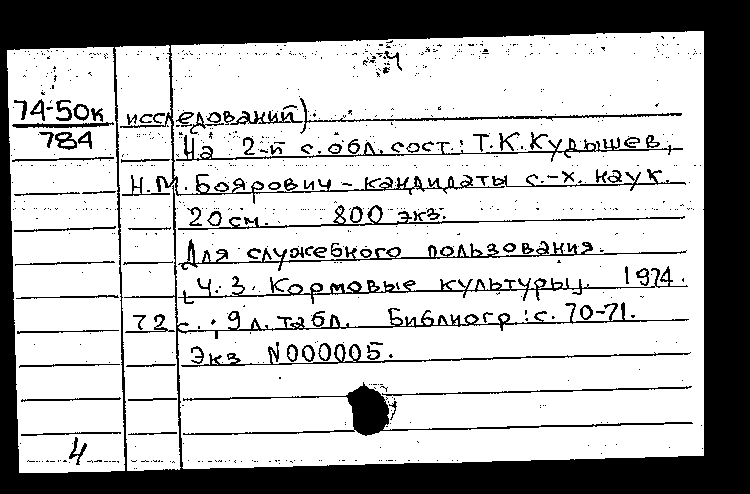 4
74-50к
784
исследований).
На 2-й с. обл. сост.: Т.К. Кудышев,
Н.М. Боярович - кандидаты с.-х. наук.
20 см. 800 экз.
Для служебного пользования.
Ч. 3. Кормовые культуры. 1974.
72 с.; 9 л. табл. Библиогр.: с. 70-71.
Экз N000005.
4